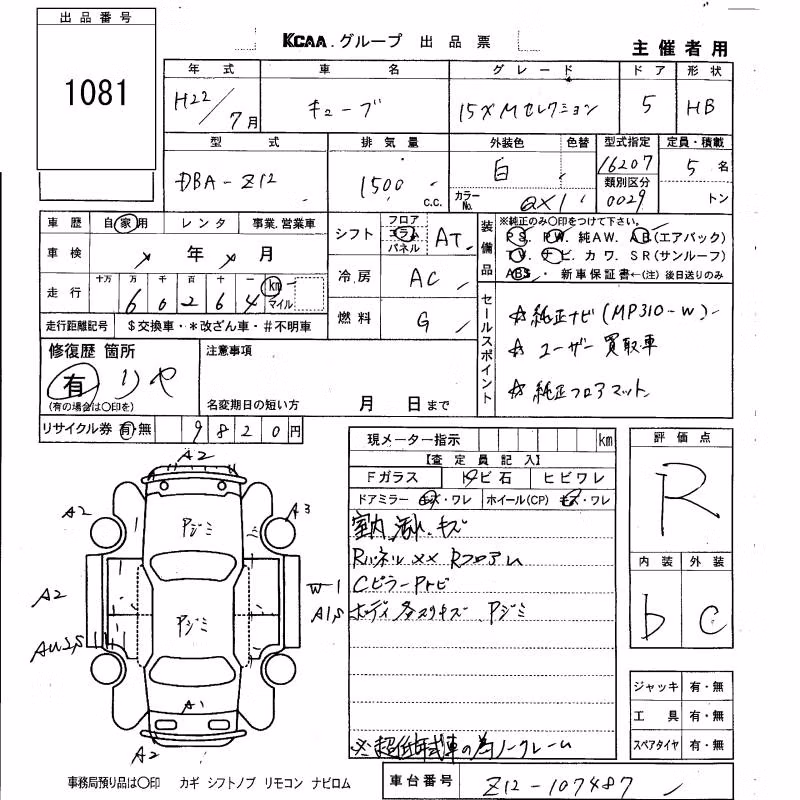 出品番号
1081
KCAA.グループ 出品票
主催者用
年式 車名 グレード ドア 形状
H22/7月 キューブ 15X Mセレクション 5 HB
型式 排気量 外装色 色替 型式指定 定員・積載
DBA-Z12 1500 c.c. 白 カラーNo. QX1 16207 5名
類別区分 0029 トン
車歴 自家用 レンタ 事業.営業車
車検 年 月
走行 十万 万 千 百 十 一 km マイル
60264
走行距離記号 $交換車・*改ざん車・#不明車
シフト フロア コラム パネル AT
冷房 AC
燃料 G
装備品 ※純正のみ〇印をつけて下さい。
PS. PW. 純AW. AB(エアバック)
TV. ナビ. カワ. SR(サンルーフ)
ABS ・ 新車保証書←(注)後日送りのみ
セールスポイント
☆純正ナビ(MP310-W)
☆ユーザー買取車
☆純正フロアマット
修復歴 箇所 注意事項
有 リヤ
(有の場合は〇印を) 名変期日の短い方 月 日まで
リサイクル券 有・無 9820円
現メーター指示 km
【査定員記入】
Fガラス トビ石 ヒビワレ
ドアミラー キズ・ワレ ホイール(CP) キズ・ワレ
室内 キズ
Rパネル×× Rフロア
CピラーPトビ
ボディ各スリキズ Pジミ
※超低年式車の為ノークレーム
評価点
R
内装 外装
b C
ジャッキ 有・無
工具 有・無
スペアタイヤ 有・無
A2
Pジミ
A2 A3
A2 W1
A1,S
Pジミ
A1
A2
事務局預り品は〇印 カギ シフトノブ リモコン ナビロム
車台番号 Z12-107487